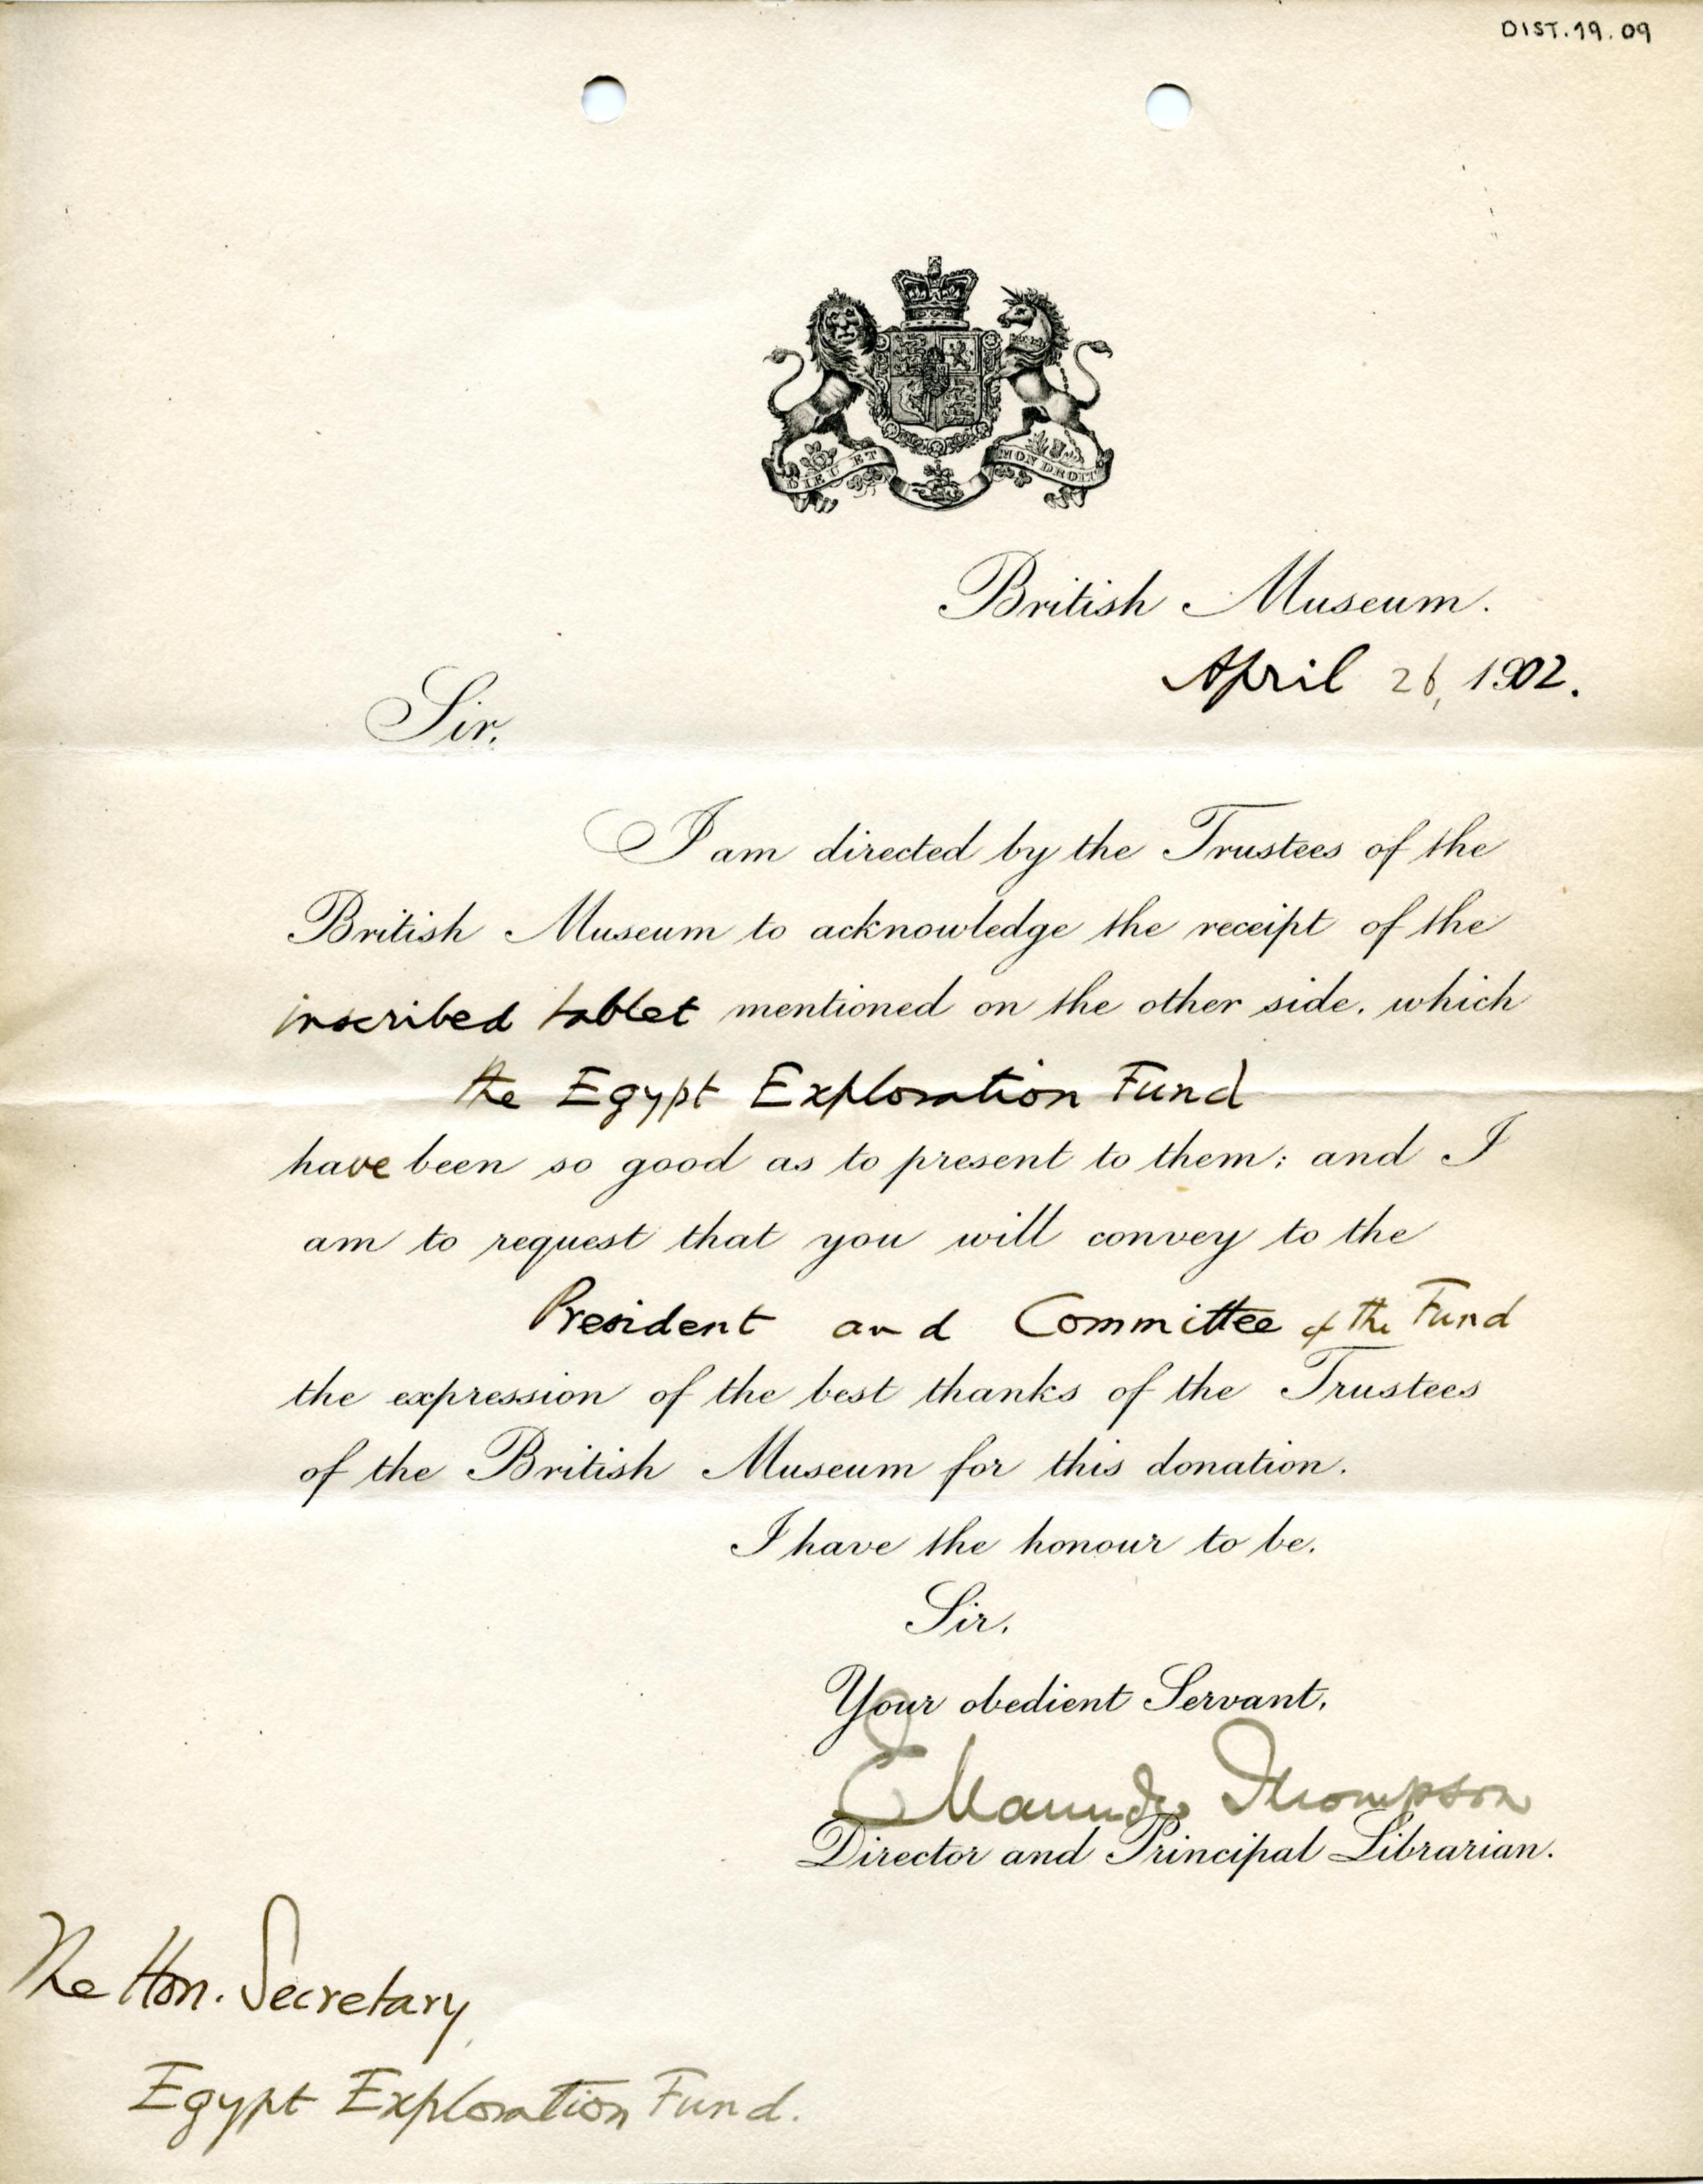 DIST.19.09
DIEU ET MON DROIT
British Museum.
April 26, 1902.
Sir,
I am directed by the Trustees of the
British Museum to acknowledge the receipt of the
inscribed tablet mentioned on the other side, which
the Egypt Exploration Fund
have been so good as to present to them; and I
am to request that you will convey to the
President and Committee of the Fund
the expression of the best thanks of the Trustees
of the British Museum for this donation.
I have the honour to be,
Sir,
Your obedient Servant,
E Maunde Thompson
Director and Principal Librarian.
The Hon. Secretary
Egypt Exploration Fund.